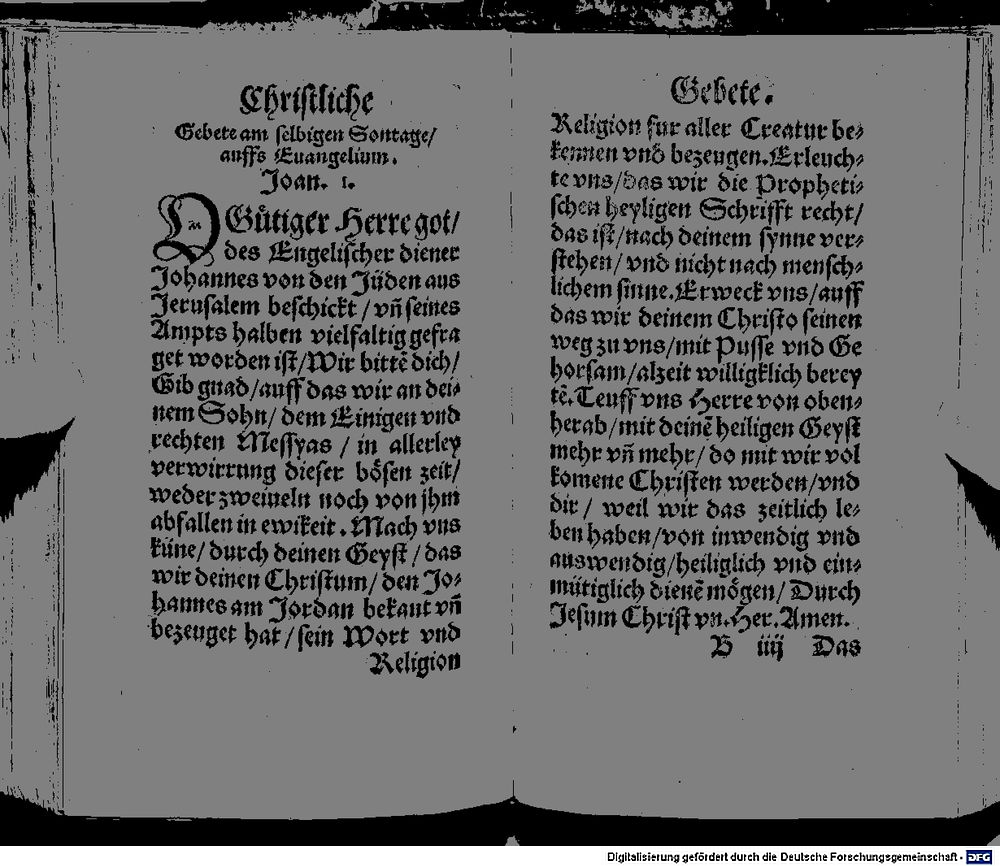 Christliche
Gebete am selbigen Sontage/
auffs Euangelium.
Joan. 1.
O Gütiger Herre got/
des Engelischer diener
Johannes von den Jüden aus
Jerusalem beschickt / vñ seines
Ampts halben vielfaltig gefra
get worden ist/Wir bittẽ dich/
Gib gnad/auff das wir an dei⸗
nem Sohn/ dem Einigen vnd
rechten Messyas / in allerley
verwirrung dieser bösen zeit/
weder zweiueln noch von jhm
abfallen in ewikeit. Mach vns
küne/ durch deinen Geyst / das
wir deinen Christum/ den Jo⸗
hannes am Jordan bekant vñ
bezeuget hat / sein Wort vnd
Religion
Gebete.
Religion fur aller Creatur be⸗
kennen vnd bezeugen. Erleuch⸗
te vns/das wir die Propheti⸗
schen heyligen Schrifft recht/
das ist/nach deinem synne ver⸗
stehen/ vnd nicht nach mensch⸗
lichem sinne. Erweck vns/auff
das wir deinem Christo seinen
weg zu vns/mit Pusse vnd Ge
horsam/alzeit willigklich berey
tẽ. Teuff vns Herre von oben⸗
herab/mit deinẽ heiligen Geyst
mehr vñ mehr/ do mit wir vol
komene Christen werden/vnd
dir / weil wir das zeitlich le⸗
ben haben/von inwendig vnd
auswendig/heiliglich vnd ein⸗
mütiglich dienẽ mögen/ Durch
Jesum Christ vn. Her. Amen.
B iiij Das
Digitalisierung gefördert durch die Deutsche Forschungsgemeinschaft - DFG